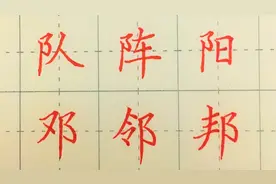 队阵阳
邓邻邦